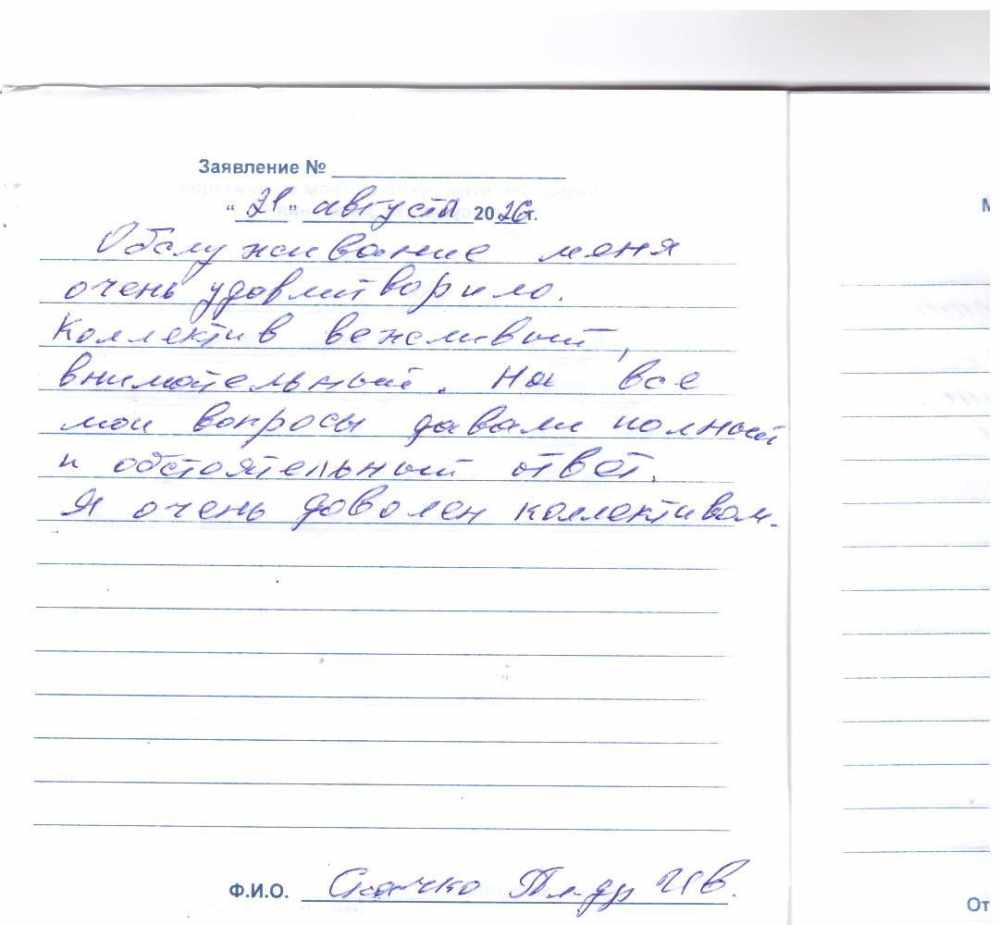 Заявление № 
“ 21 ” августа 2026г.
Обслуживание меня
очень удовлетворило.
Коллектив вежливый,
внимательный. На все
мои вопросы давали полный
и обстоятельный ответ.
Я очень доволен коллективом.
Ф.И.О. Ив.
От